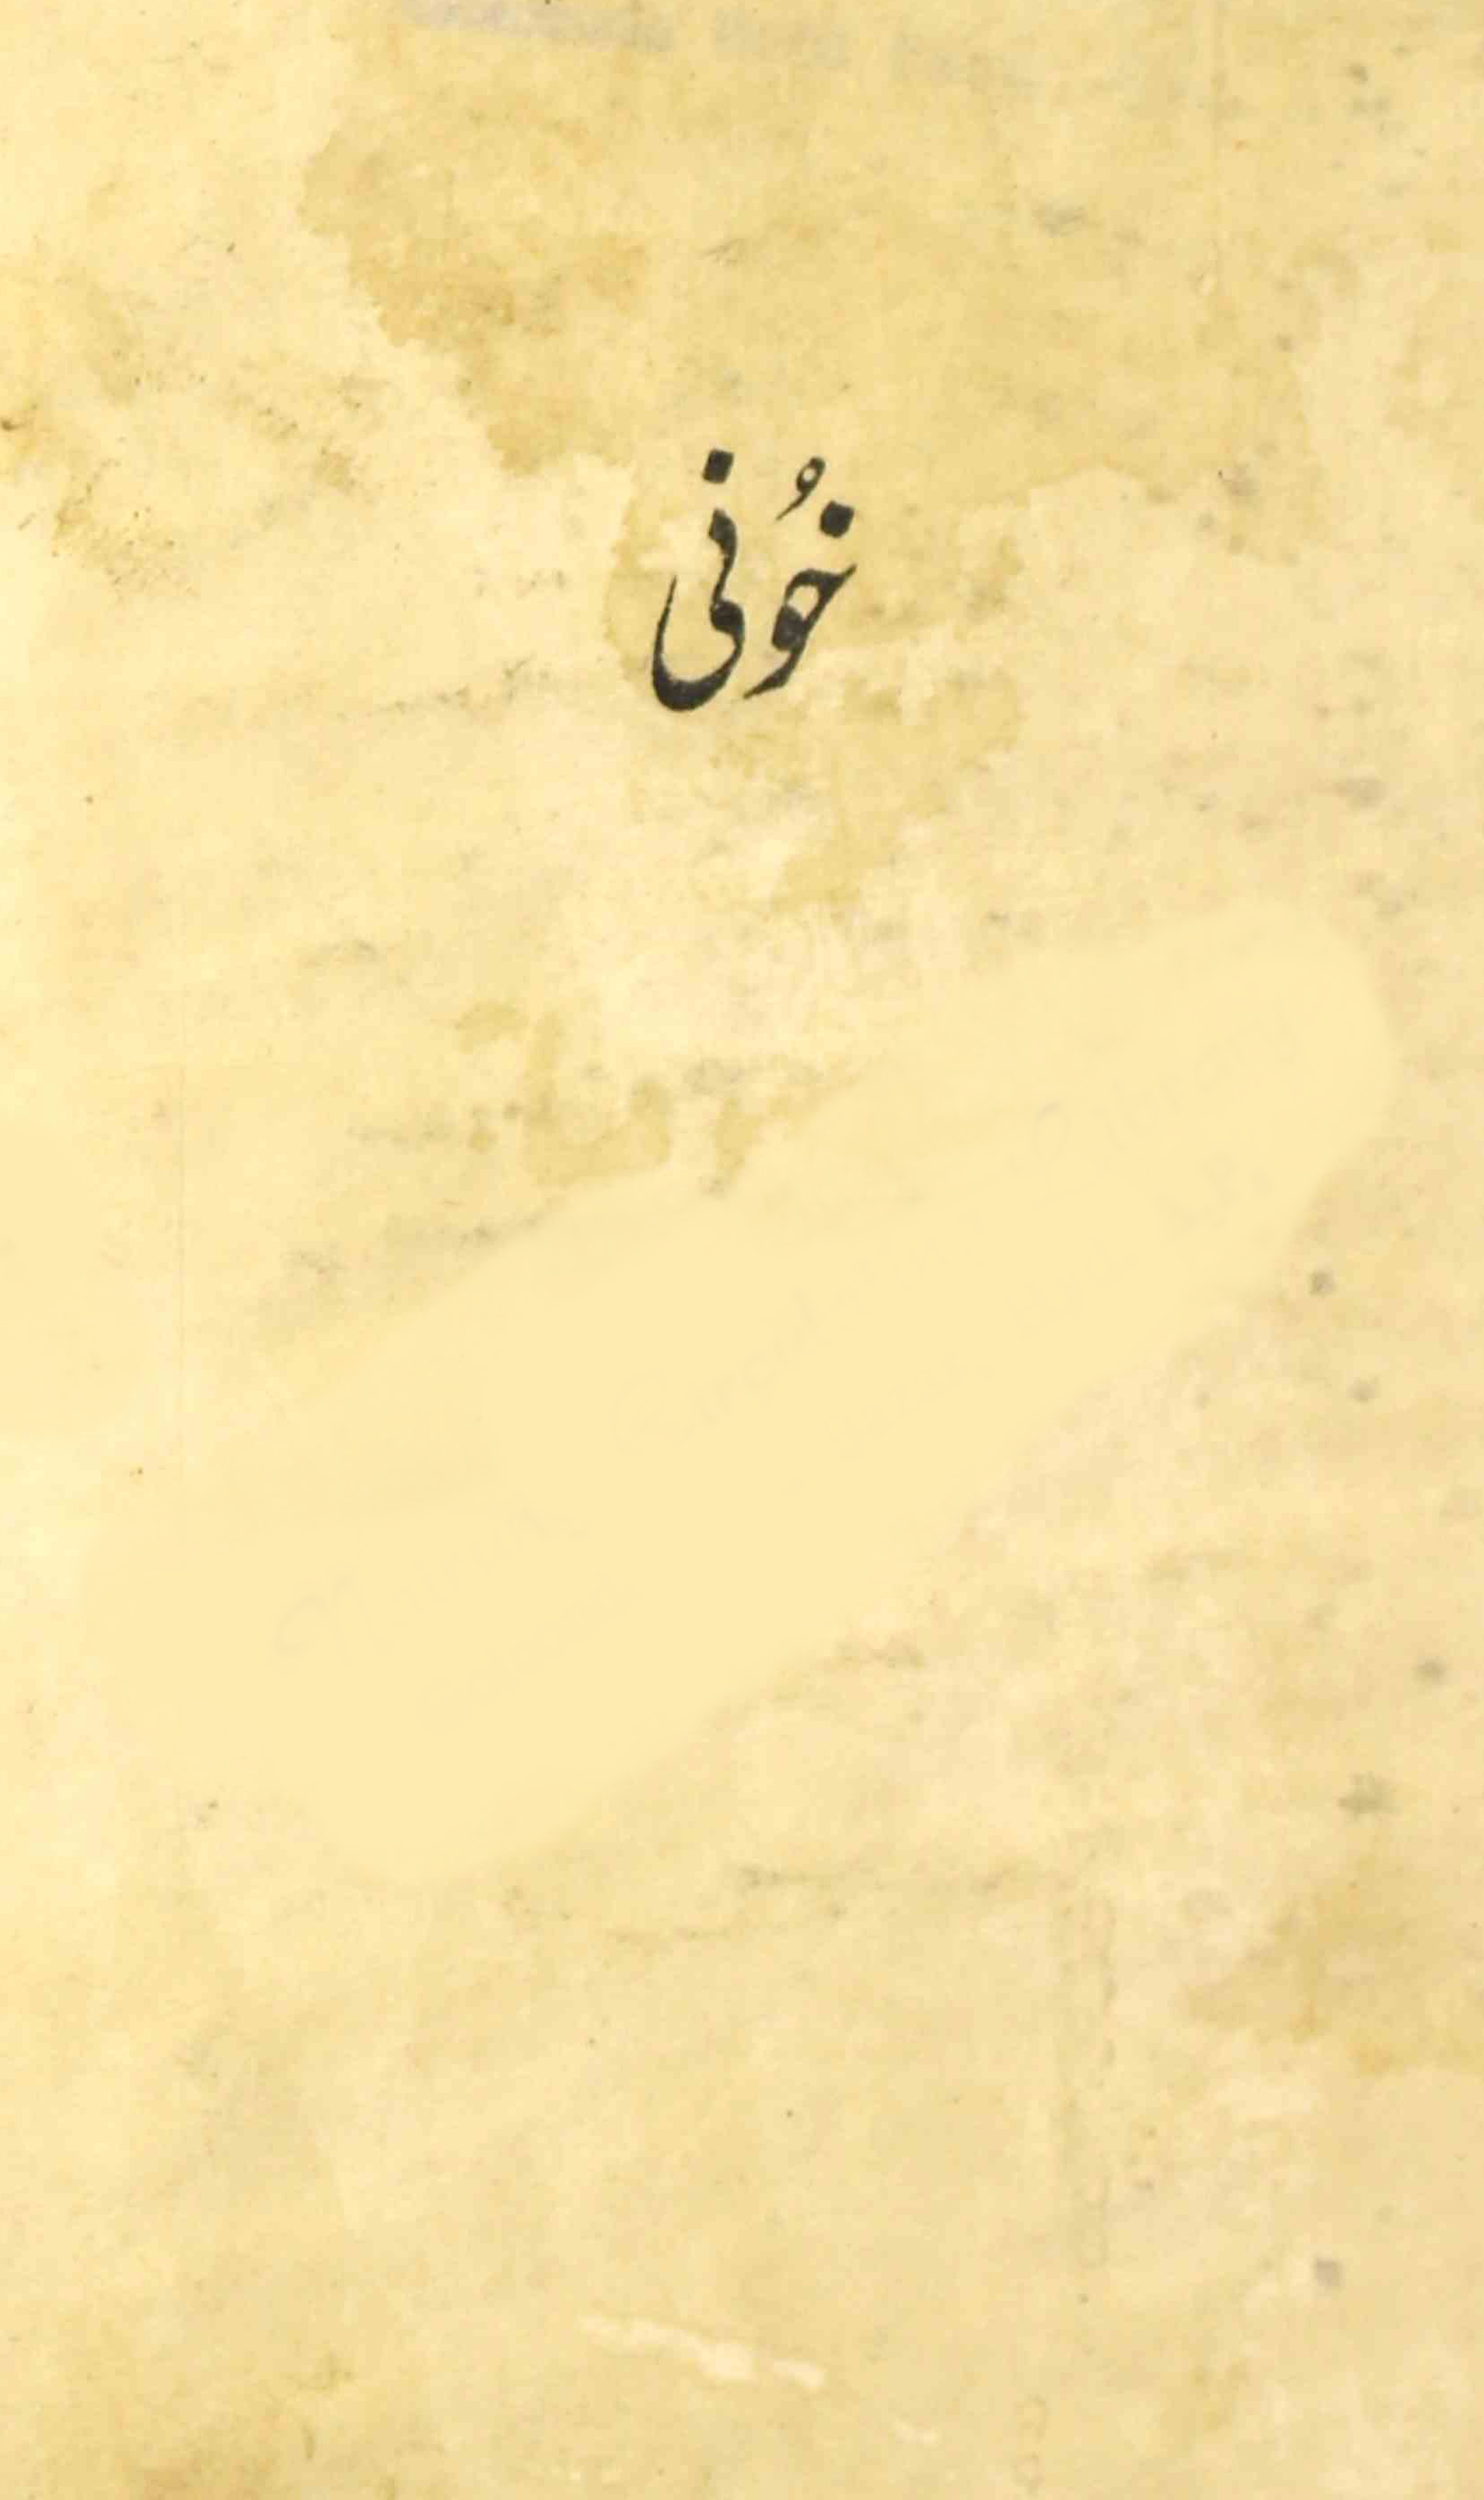 خُونی